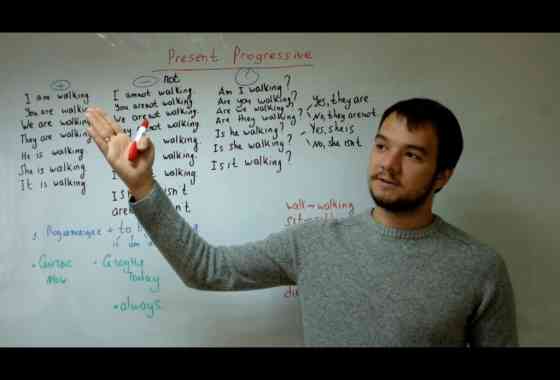 Present Progressive
+
I am walking.
You are walkin
We are walking
They are walkin
He is walking
She is walking
It is walking
— not
I am not walking.
You are not walking.
We are not walking.
They not walking.
walking.
walking.
walking.
Is isn't
are n't
?
Am I walking?
Are you walking?
Are we walking?
Are they walking?
Is he walking?
Is she walking?
Is it walking?
Yes, they are
No, they are not
Yes, she is
No, she isn't
+ to
Сейчас
now
today
always
walk → walking
sit
di